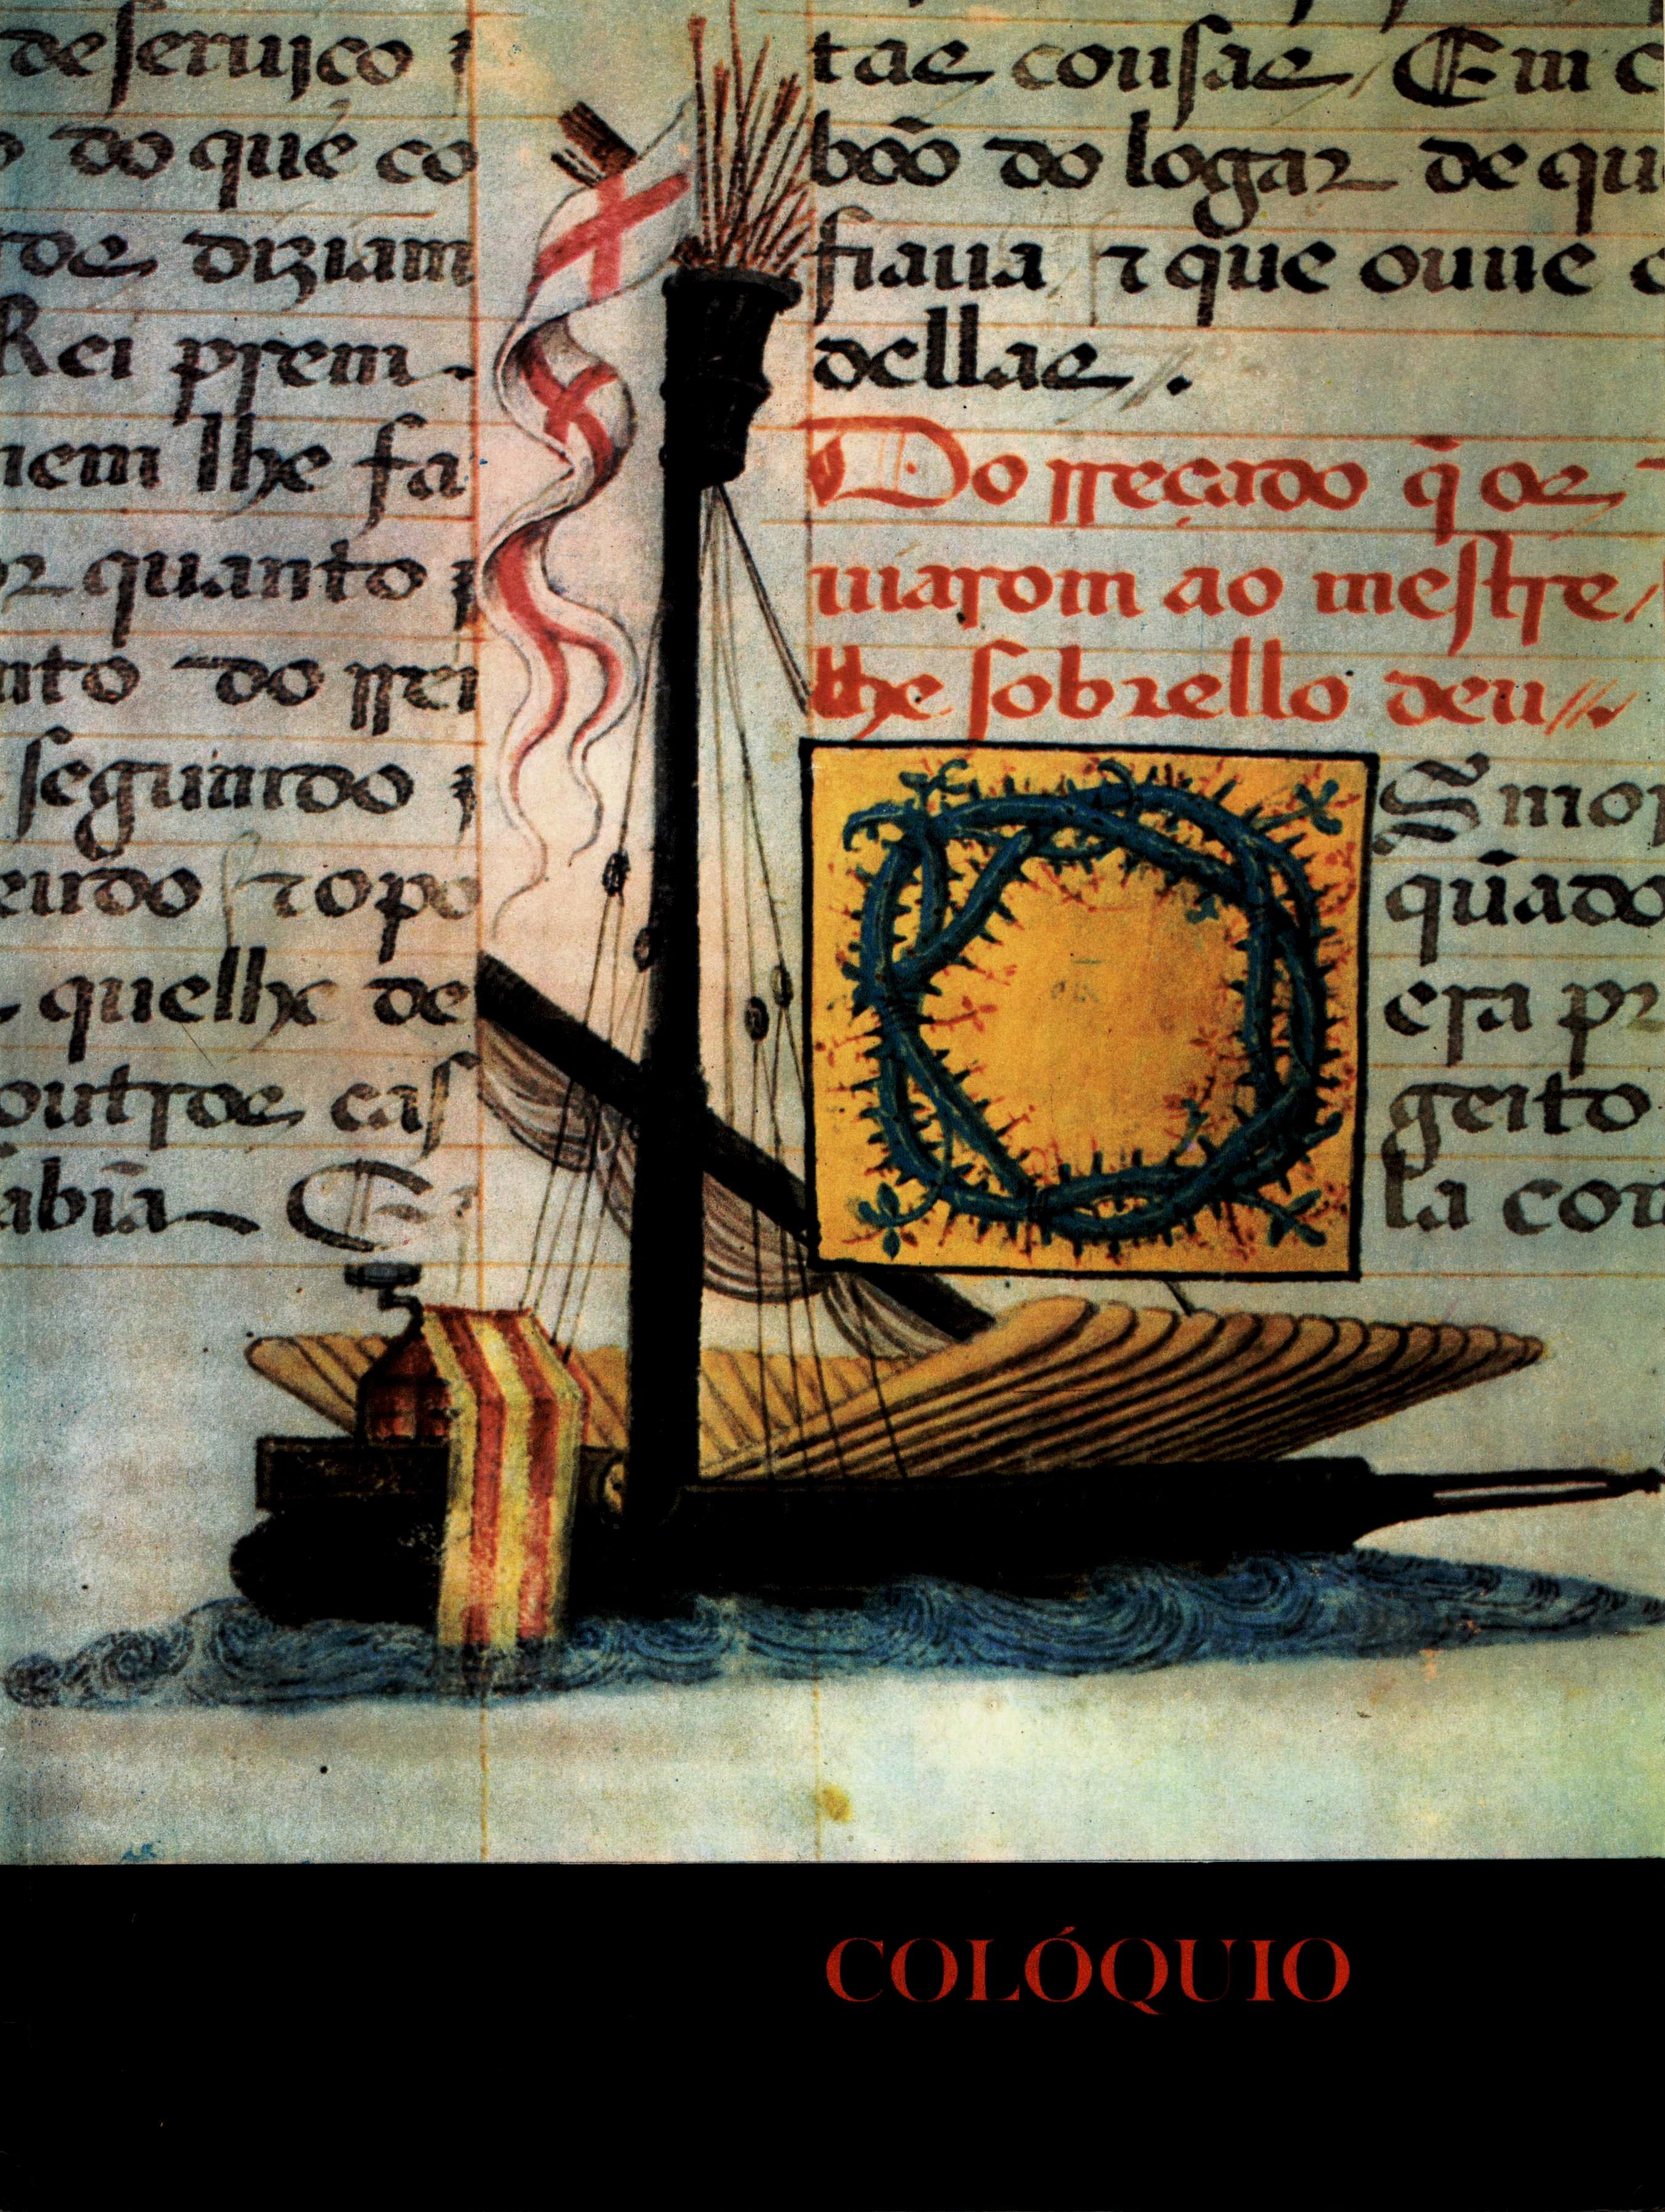 deseruiço
do que co
diziam
Rei prem
lhe fa
quanto p
nto do rrei
seguindo
topo
quelhe de
outros cas
abiã E
tas cousas / Em
bõo do logar de que
fiaua / ⁊ que ouue
dellas //.
Do rrecado q̃ os
uiarom ao mestre /
lhe sobrello deu //.
O
S mo
quãdo
era pr
geito
la con
COLÓQUIO